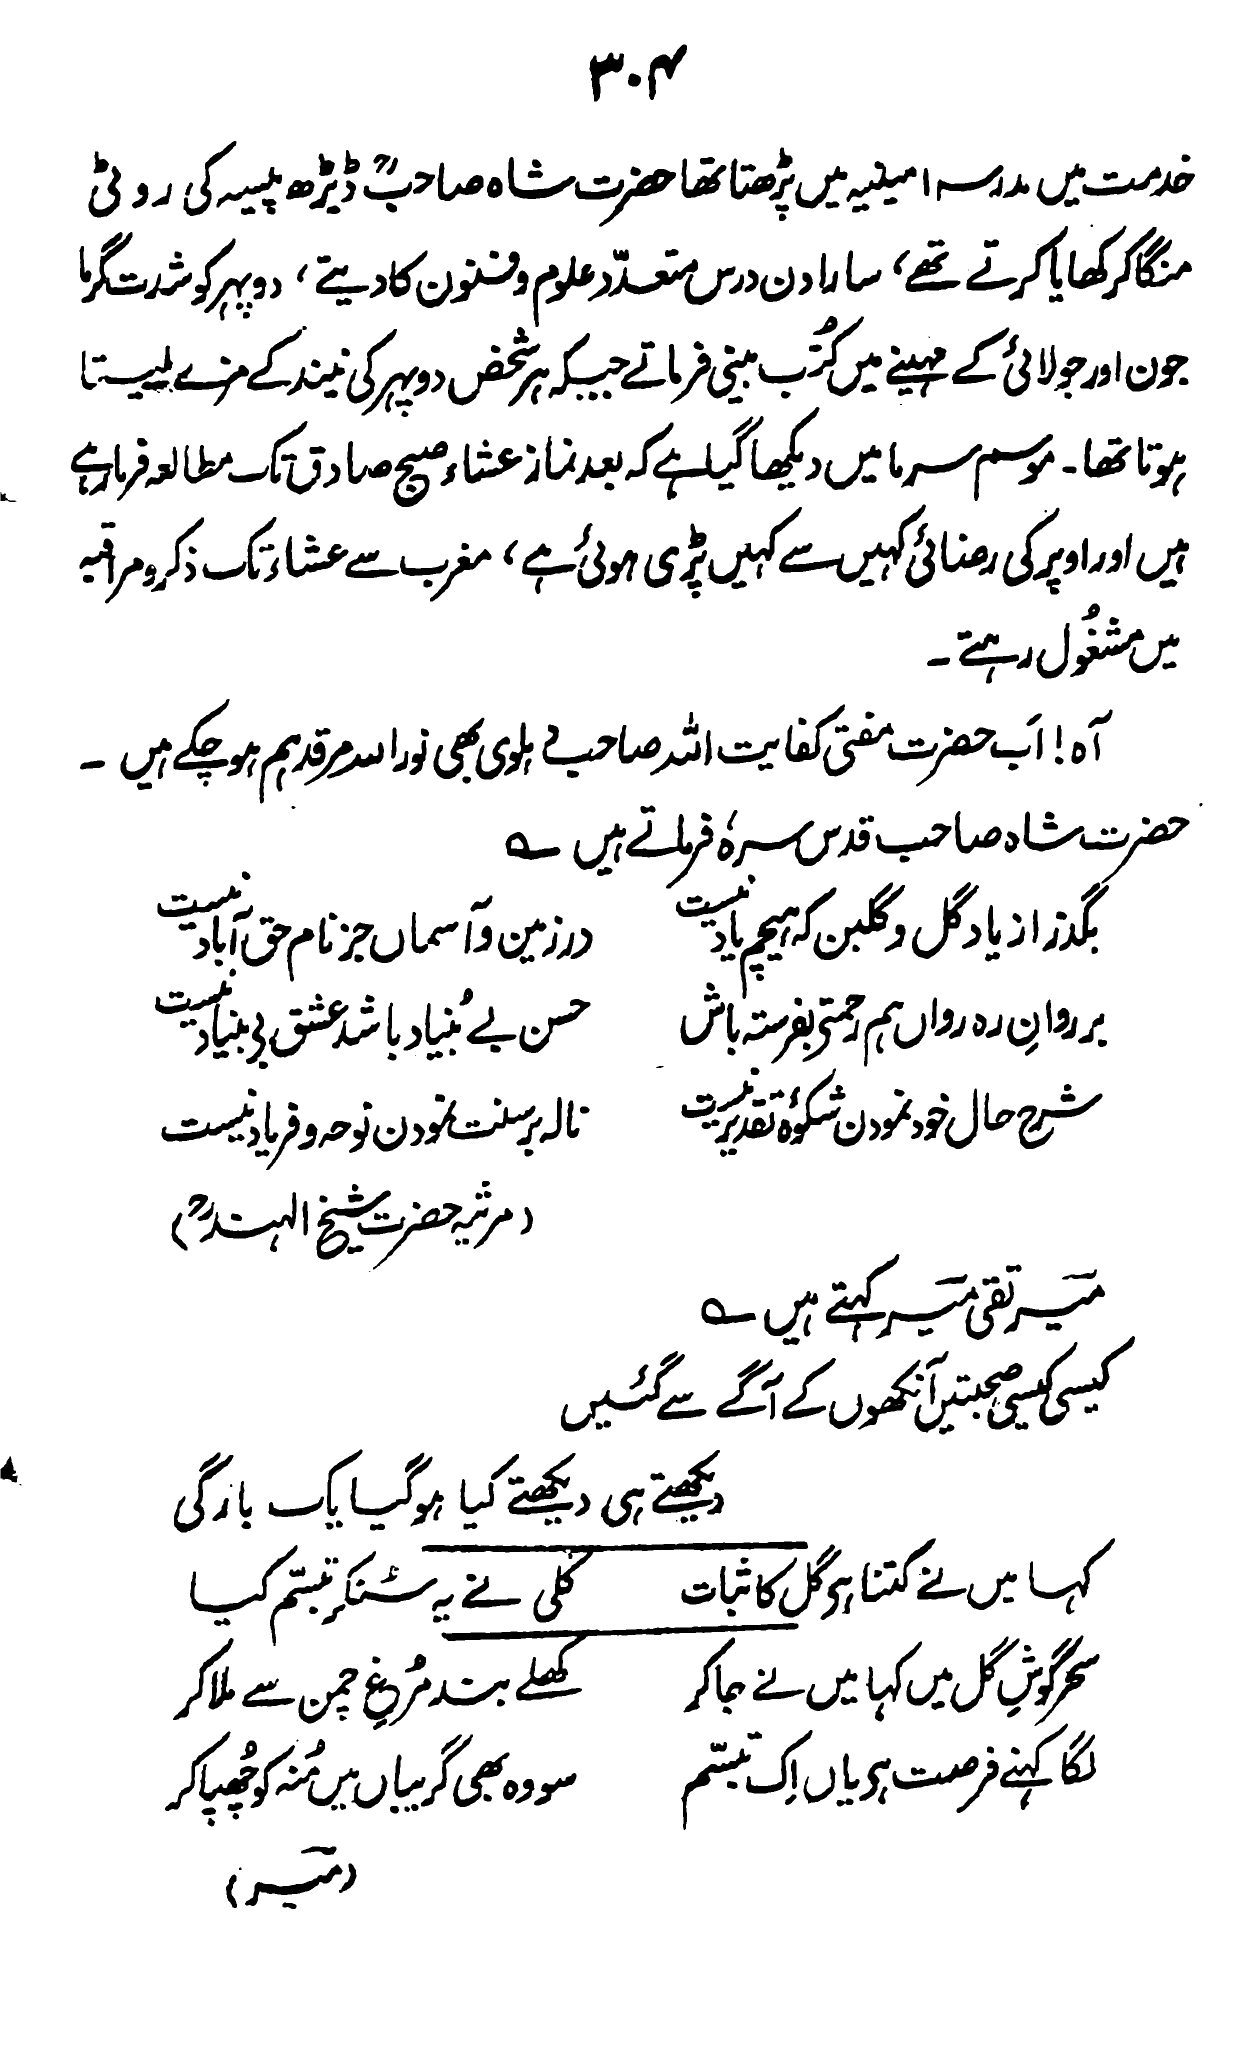 ۳۰۴
خدمت میں مدرسہ امینیہ میں پڑھتا تھا حضرت شاہ صاحبؒ ڈیڑھ پیسہ کی روٹی
منگا کر کھایا کرتے تھے، سارا دن درس متعدّد علوم و فنون کا دیتے، دوپہر کو شدت گرما
جون اور جولائی کے مہینے میں کُتُب بینی فرماتے جبکہ ہر شخص دوپہر کی نیند کے مزے لیتا
ہوتا تھا۔ موسم سرما میں دیکھا گیا ہے کہ بعد نماز عشاء صبح صادق تک مطالعہ فرما رہے
ہیں اور اوپر کی رضائی کہیں سے کہیں پڑی ہوئی ہے، مغرب سے عشاء تک ذکر و مراقبہ
میں مشغُول رہتے ۔
آہ! اَب حضرت مفتی کفایت اللہ صاحب دہلوی بھی نور اللہ مرقدہم ہو چکے ہیں ۔
حضرت شاہ صاحب قدس سرہٗ فرماتے ہیں ؎
بگذر از یاد گل و گلبن کہ ہیچم یاد نیست درزمین و آسماں جز نام حق آباد نیست
بر روانِ رہ رواں ہم رحمتی بفرستہ باش حسن بے بُنیاد باشد عشق بی بنیاد نیست
شرح حال خود نمودن شکوۂ تقدیر نیست نالہ بر سنت نمودن نوحہ و فریاد نیست
(مرثیہ حضرت شیخ الہندؒ)
میر تقی میر کہتے ہیں ؎
کیسی کیسی صحبتیں آنکھوں کے آگے سے گئیں
دیکھتے ہی دیکھتے کیا ہو گیا یک بارگی
کہا میں نے کتنا ہی گل کا ثبات کلی نے یہ سُنکر تبسّم کیا
سحر گوشِ گل میں کہا میں نے جا کر کھلے بند مُرغِ چمن سے ملا کر
لگا کہنے فرصت ہی یاں اِک تبسّم سو وہ بھی گریباں میں مُنہ کو چُھپا کر
(میر)